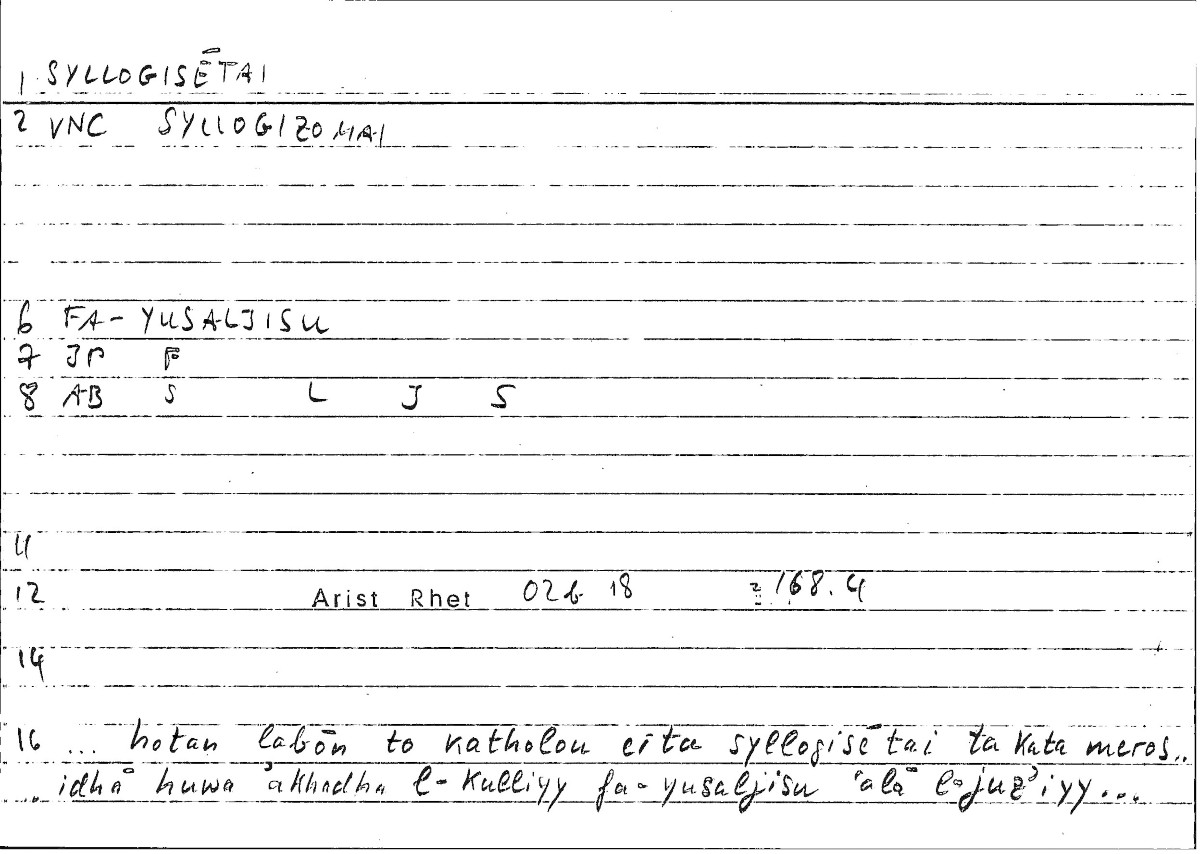 1 SYLLOGISĒTAI
2 VNC SYLLOGIZOMAI
6 FA- YUSALJISU
7 JP F
8 AB S L J S
11
12 Arist Rhet 02b 18 = 168.4
14
16 ... hotan labōn to katholou eita syllogisētai ta kata meros..
... idhā huwa 'akhadha l-kulliyy fa-yusaljisu 'alā l-juz'iyy...